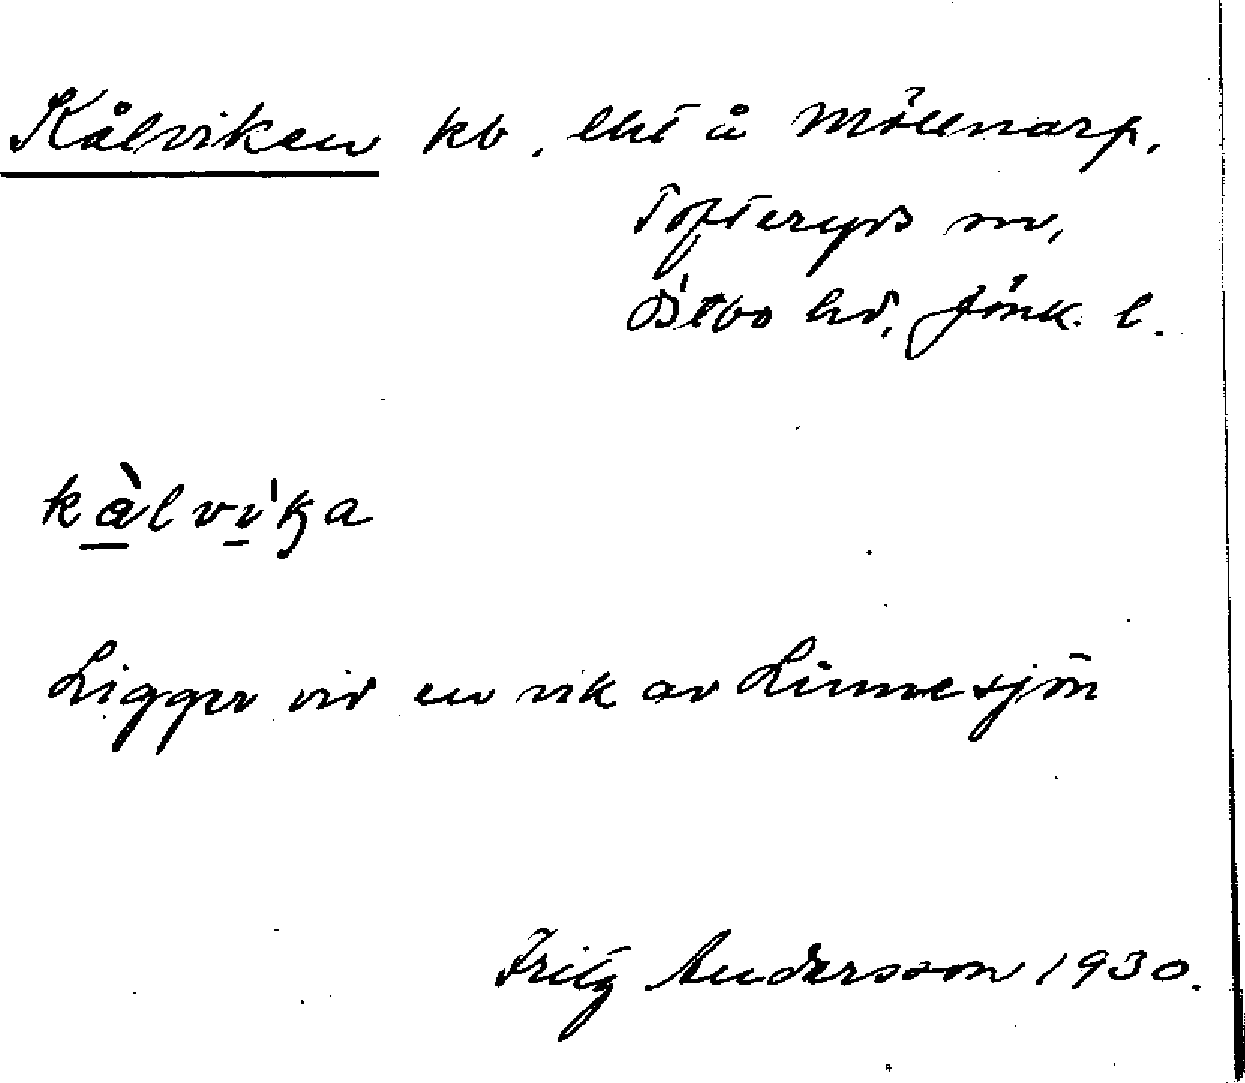 Kålviken kb, lht å Möllnarp,
Tofteryds sn,
Östbo hd, Jönk. l.
kàlvi'ka
Ligger vid en vik av Linnesjön
Fritz Andersson 1930.